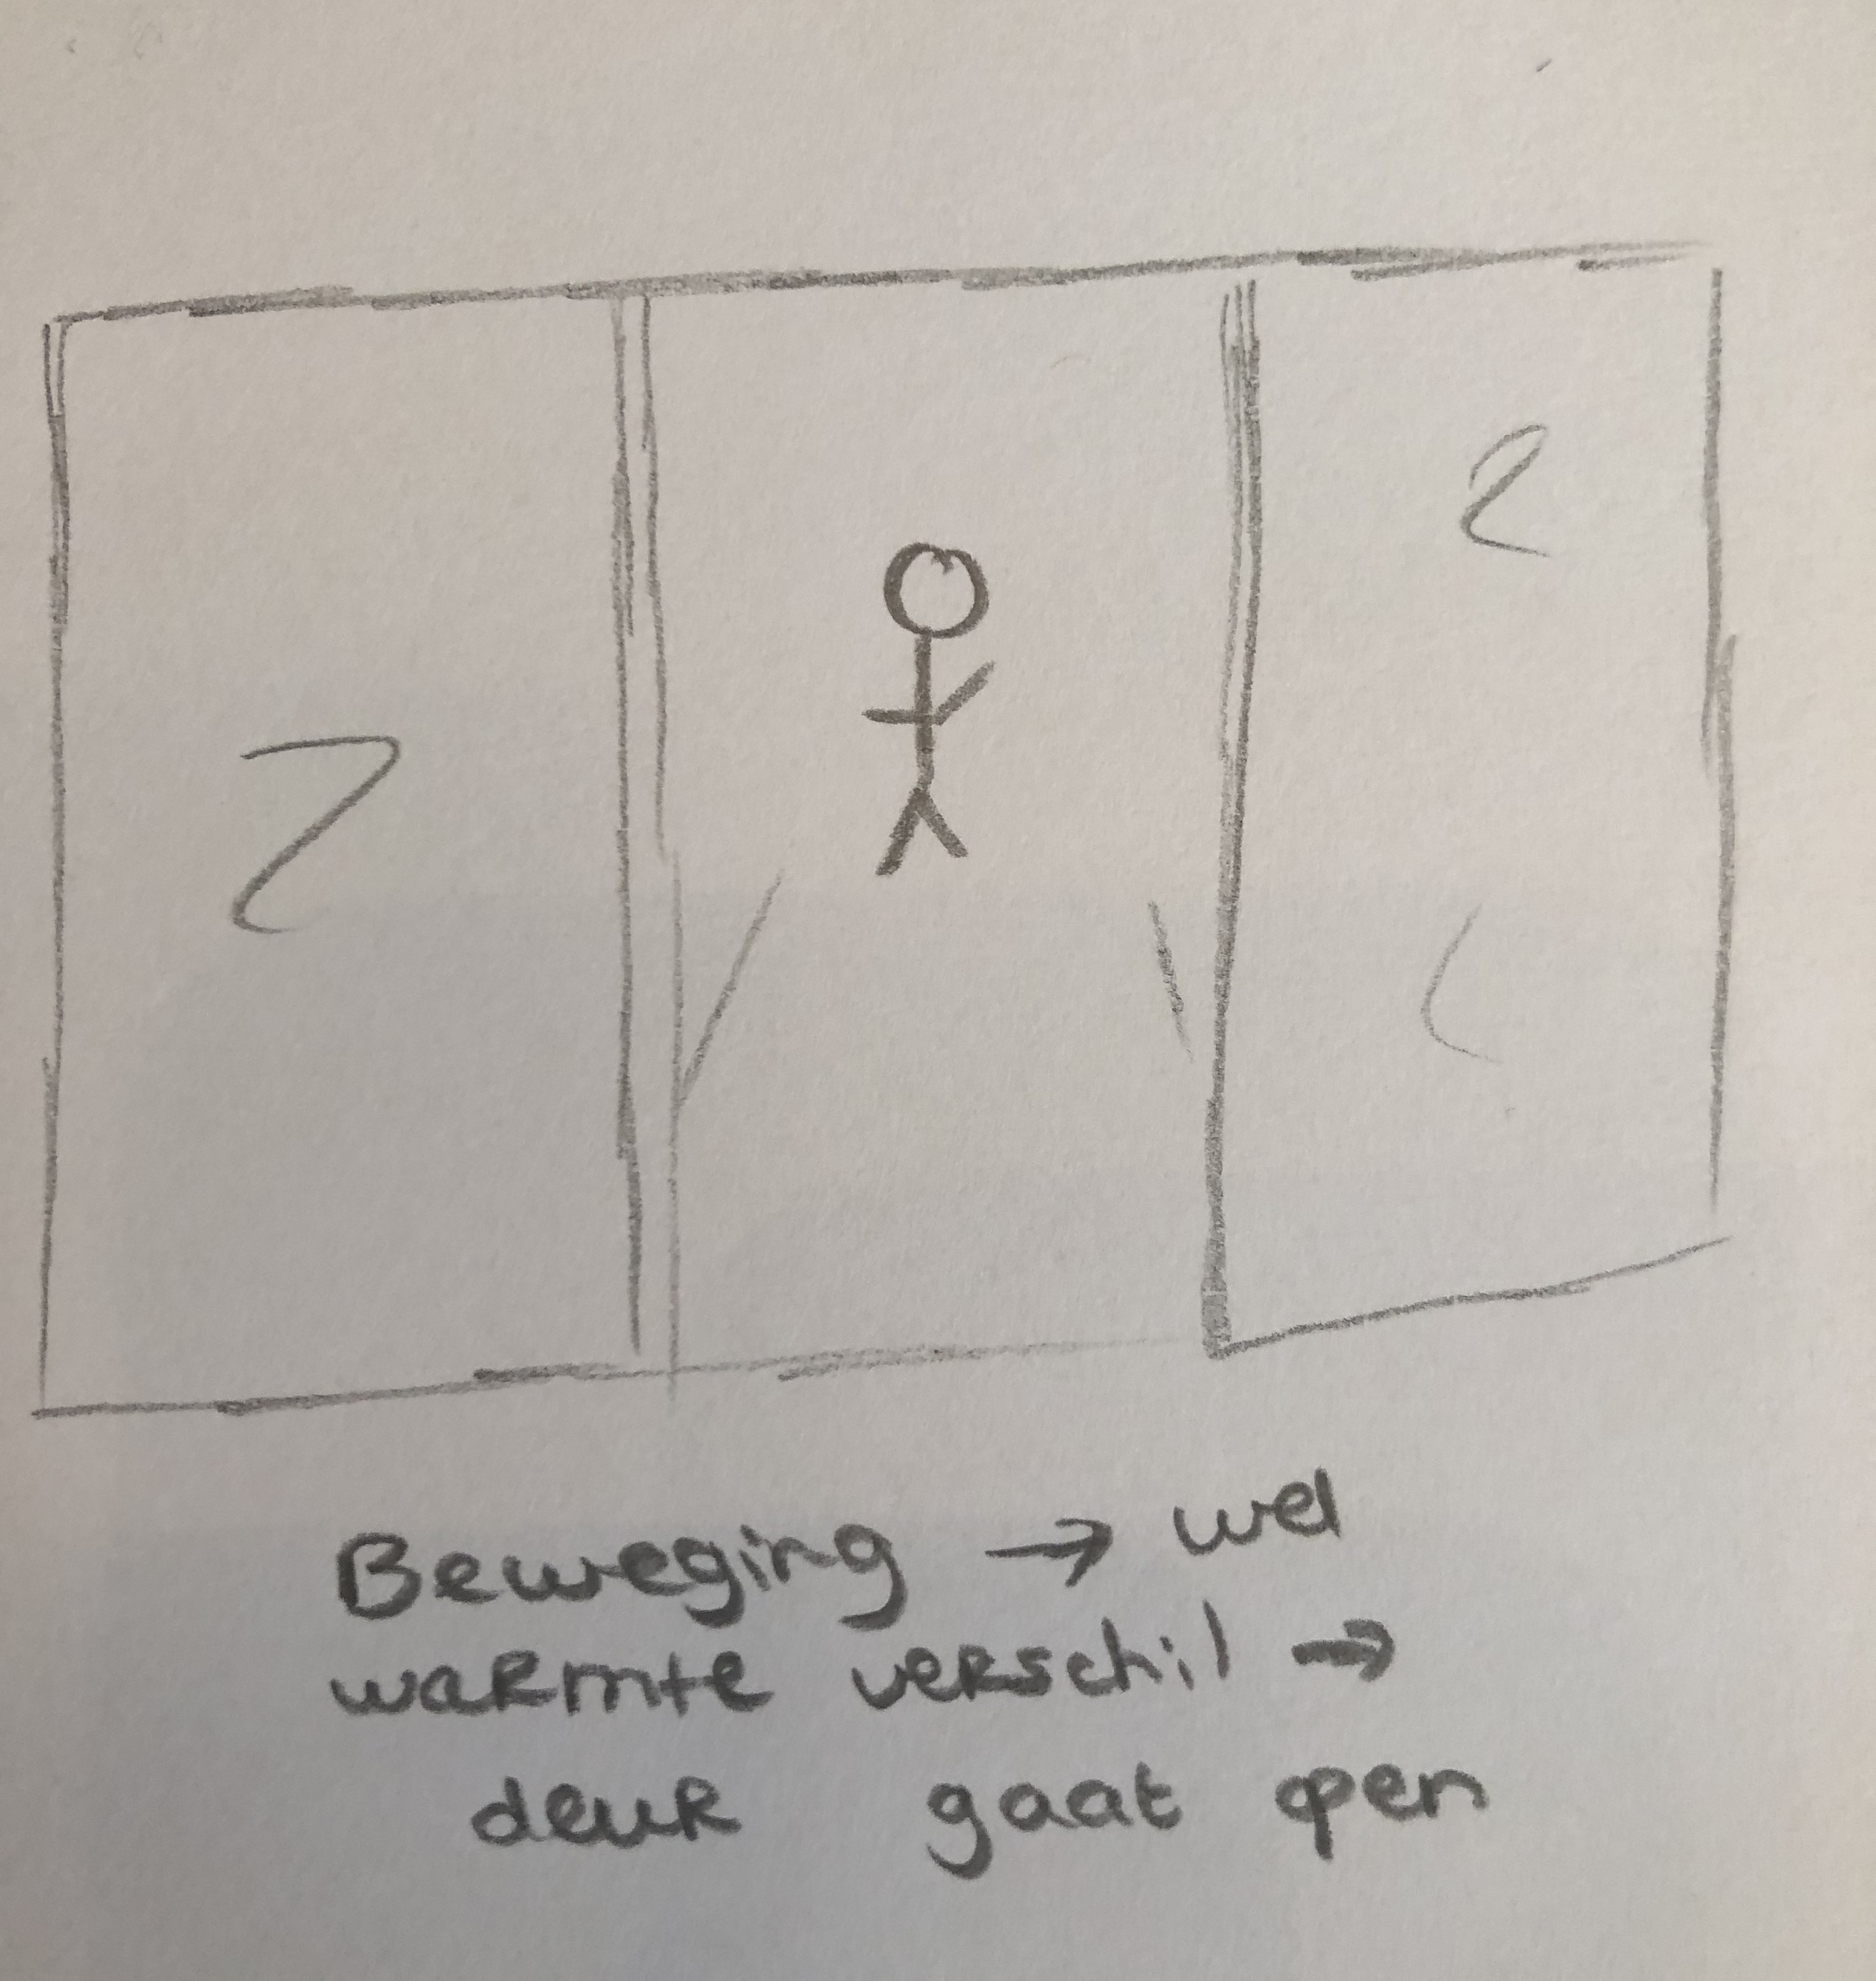 Beweging → wel
warmte verschil →
deur gaat open